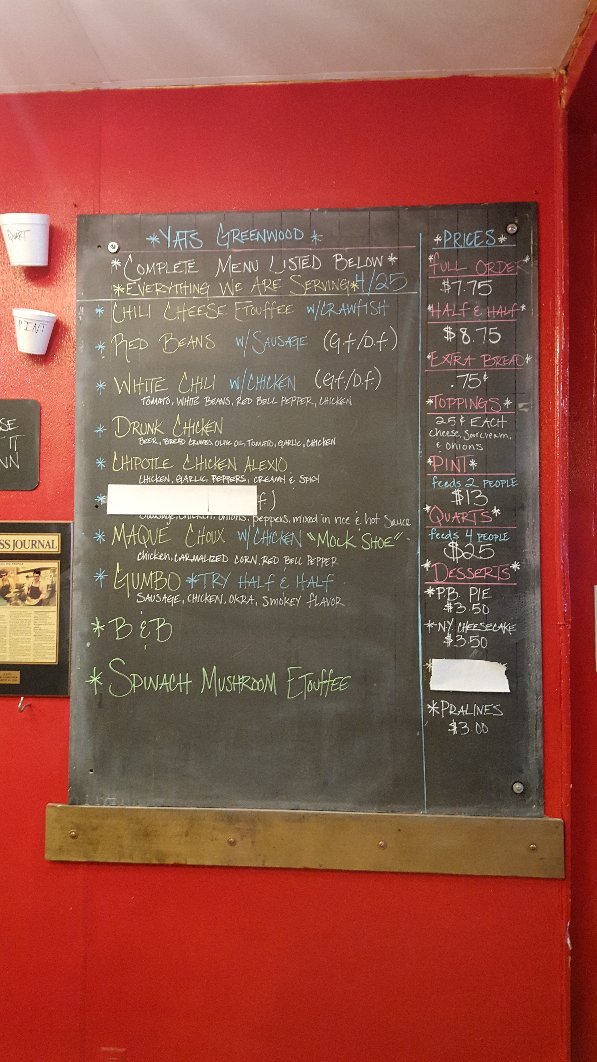 UART
PINT
SE
IT
NN
SS JOURNAL
*YATS GREENWOOD*
*COMPLETE MENU LISTED BELOW*
*EVERYTHING WE ARE SERVING* 4/25
* CHILI CHEESE ETOUFFEE W/CRAWFISH
* RED BEANS W/SAUSAGE (G.f/D.f)
* WHITE CHILI W/CHICKEN (G.f/D.f)
TOMATO, WHITE BEANS, RED BELL PEPPER, CHICKEN
* DRUNK CHICKEN
BEER, BREAD CRUMBS, OLIVE OIL, TOMATO, GARLIC, CHICKEN
* CHIPOTLE CHICKEN ALEXIO
CHICKEN, GARLIC, PEPPERS, CREAMY & SPICY
* f)
Sausage, chicken, onions, peppers, mixed in rice & hot sauce
* MAQUE CHOUX W/CHICKEN "MOCK SHOE"
chicken, CARMALIZED CORN, RED BELL PEPPER
* GUMBO *TRY HALF & HALF
SAUSAGE, CHICKEN, OKRA, SMOKEY FLAVOR
* B & B
* SPINACH MUSHROOM ETOUFFEE
*PRICES*
FULL ORDER
$7.75
*HALF & HALF*
$8.75
*EXTRA BREAD*
.75¢
*TOPPINGS*
25¢ EACH
cheese, sourcream,
& onions
*PINT*
feeds 2 PEOPLE
$13
*QUARTS*
feeds 4 PEOPLE
$25
*DESSERTS*
*P.B. PIE
$3.50
*NY CHEESECAKE
$3.50
*PRALINES
$3.00